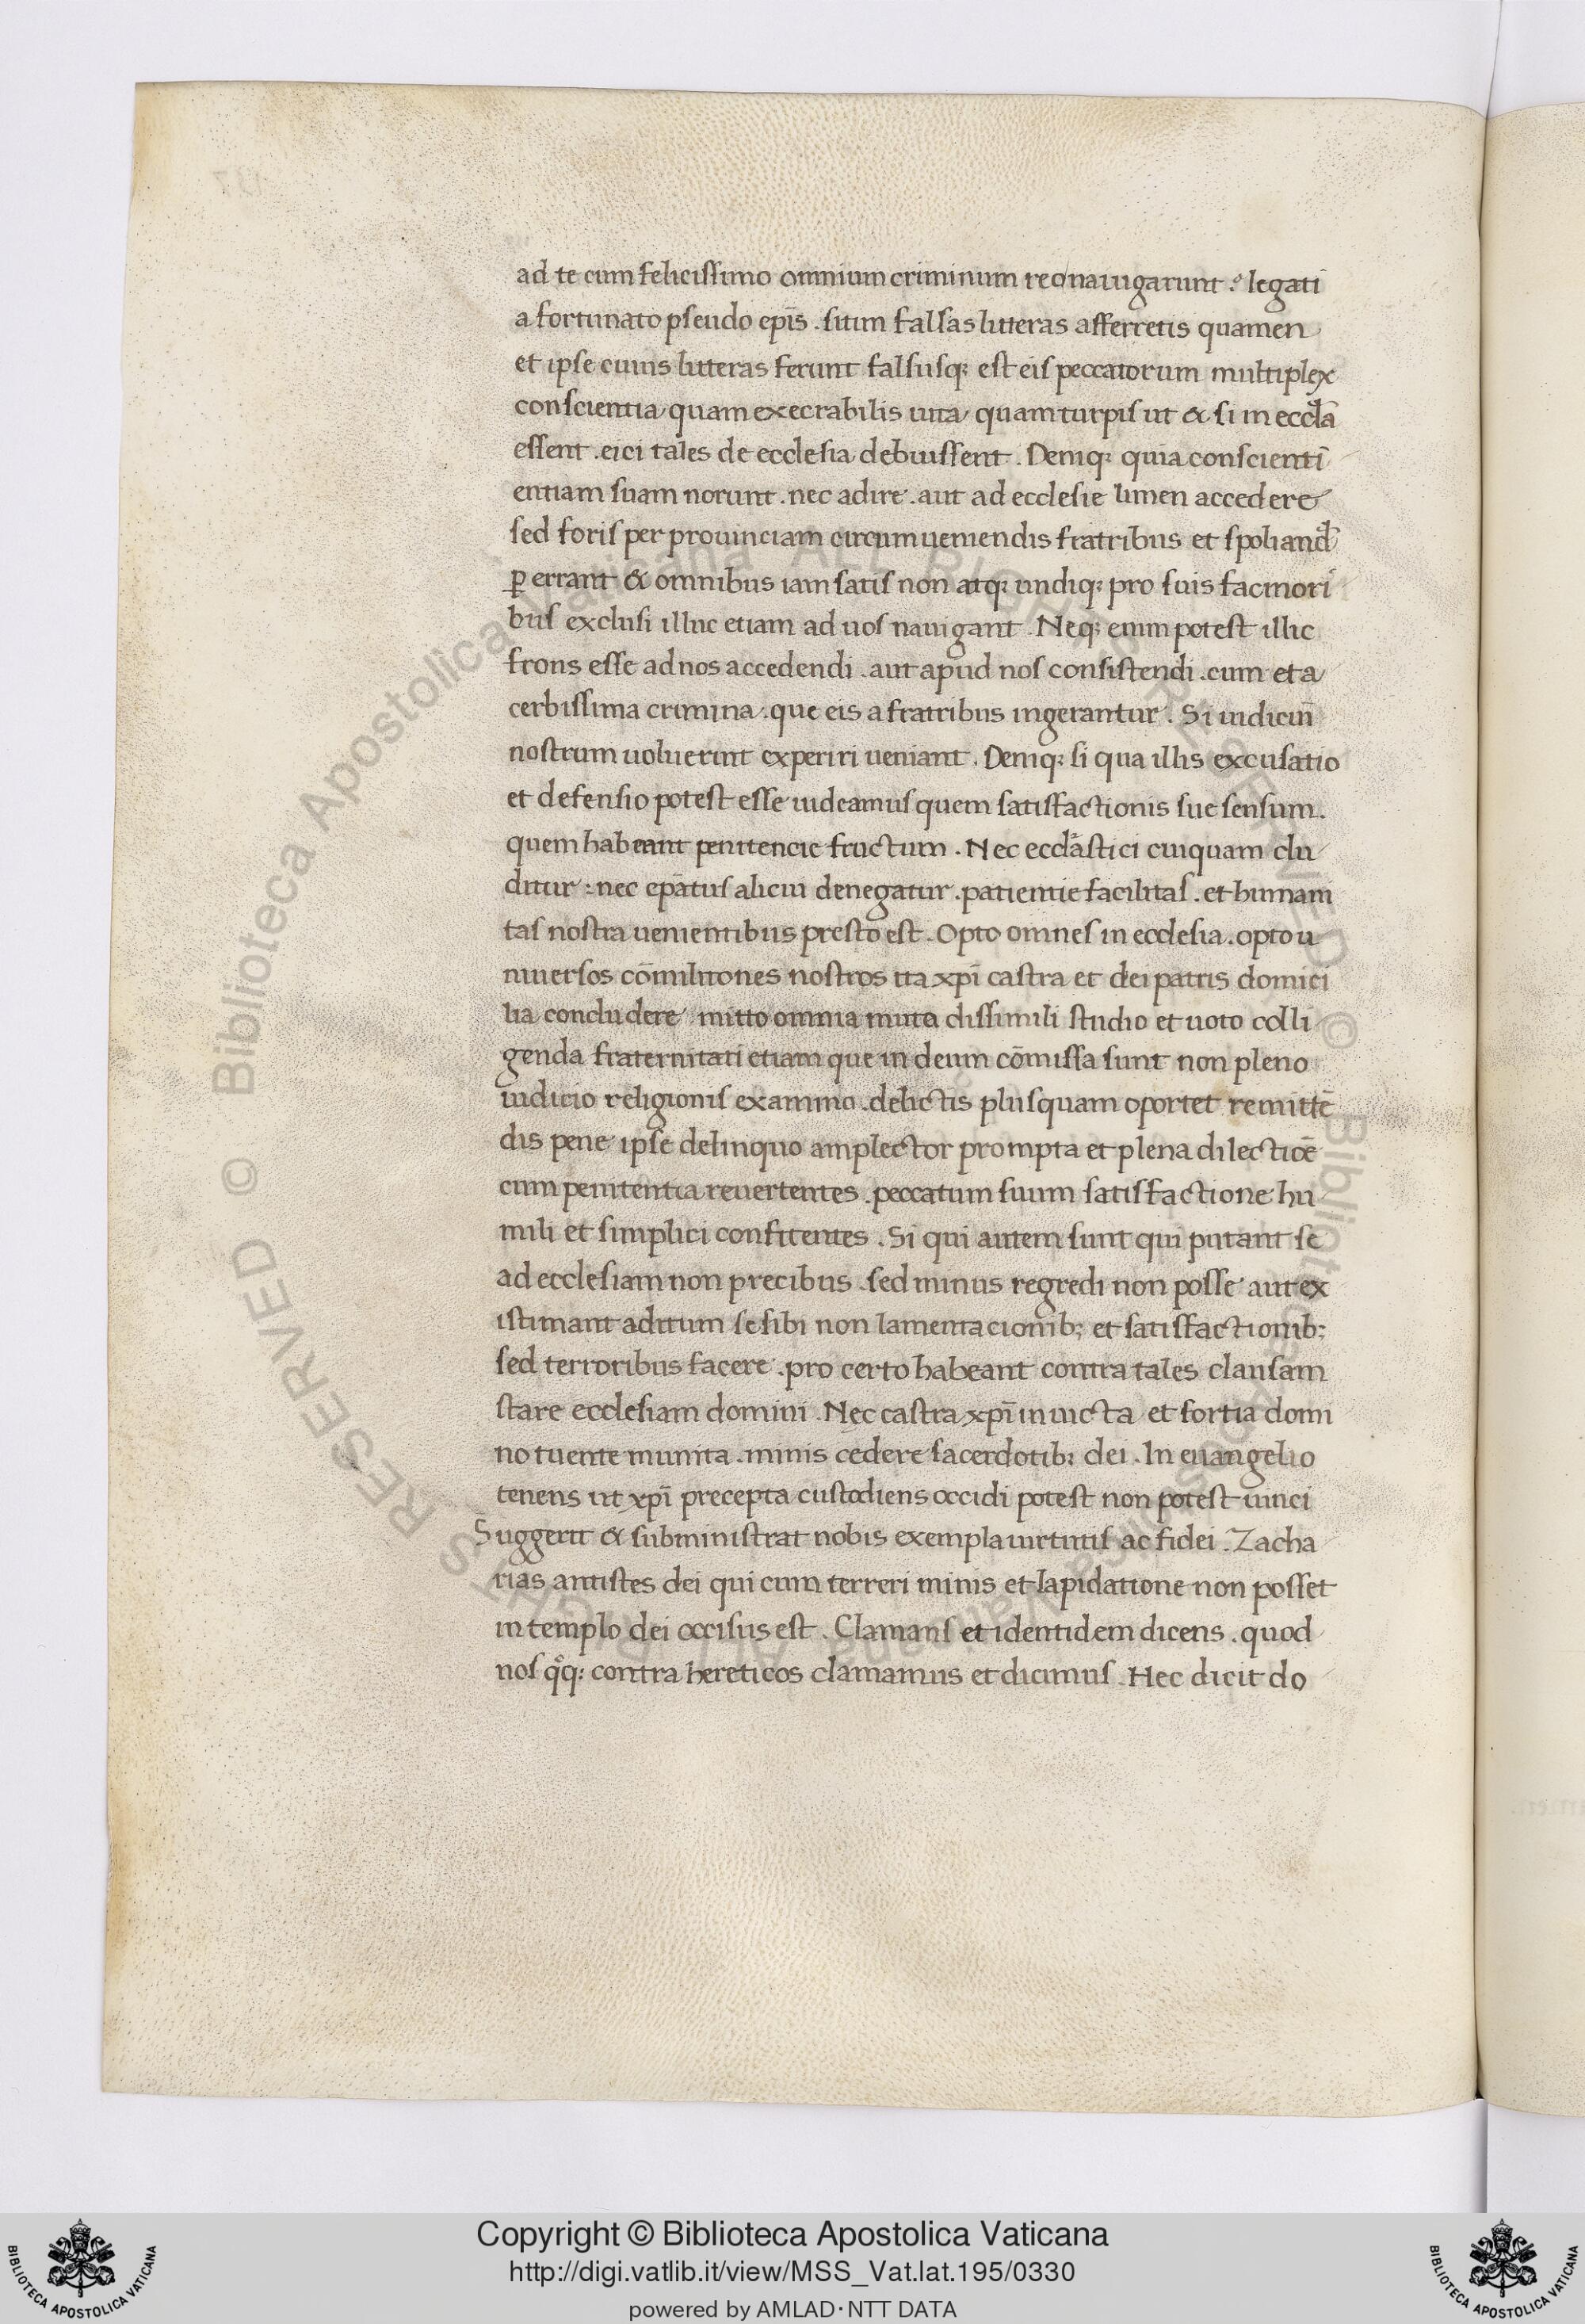 ad te cum felicissimo omnium criminum reo nauigarunt : legati
a fortunato pseudo epīs . sitim falsas litteras afferretis quamen
et ipse cuius litteras ferunt falsusq; est eis peccatorum multiplex
conscientia quam execrabilis uita quam turpis ut & si in eccl̄a
essent . eici tales de ecclesia debuissent . Deniq; quia conscientī
entiam suam norunt . nec adire . aut ad ecclesie limen accedere
sed foris per prouinciam circumueniendis fratribus et spoliand̄
ꝑ errant & omnibus iam satis non atq; undiq; pro suis facinori
bus exclusi illuc etiam ad uos nauigant . Neq; enim potest illic
frons esse ad nos accedendi . aut apud nos consistendi . cum et a
cerbissima crimina . que eis a fratribus ingerantur . Si iudiciū
nostrum uoluerint experiri ueniant . Deniq; si qua illis excusatio
et defensio potest esse uideamus quem satisfactionis sue sensum .
quem habeant penitencie fructum . Nec eccl̄astici cuiquam clu
ditur : nec ep̄atus alicui denegatur . patientie facilitas . et humani
tas nostra uenientibus presto est . Opto omnes in ecclesia . opto u
niuersos cōmilitones nostros ita xp̄i castra et dei patris domici
lia concludere mitto omnia muta dissimili studio et uoto colli
genda fraternitati etiam que in deum cōmissa sunt non pleno
iudicio religionis examino . delictis plusquam oportet remittē
dis pene ipse delinquo amplector prompta et plena dilectiōe
cum penitentia reuertentes . peccatum suum satisfactione hu
mili et simplici confitentes . Si qui autem sunt qui putant se
ad ecclesiam non precibus . sed minus regredi non posse aut ex
istimant aditum se sibi non lamentacionib; et satisfactionib;
sed terroribus facere . pro certo habeant contra tales clausam
stare ecclesiam domini . Nec castra xp̄i inuicta et fortia domi
no tuente munita . minis cedere sacerdotib; dei . In euangelio
tenens ut xp̄i precepta custodiens occidi potest non potest uinci
Suggerit & subministrat nobis exempla uirtutis ac fidei . Zacha
rias antistes dei qui cum terreri minis et lapidatione non posset
in templo dei occisus est . Clamans et identidem dicens . quod
nos qͦq; contra hereticos clamamus et dicimus . Hec dicit do
Copyright © Biblioteca Apostolica Vaticana
http://digi.vatlib.it/view/MSS_Vat.lat.195/0330
powered by AMLAD·NTT DATA
BIBLIOTECA APOSTOLICA VATICANA
BIBLIOTECA APOSTOLICA VATICANA